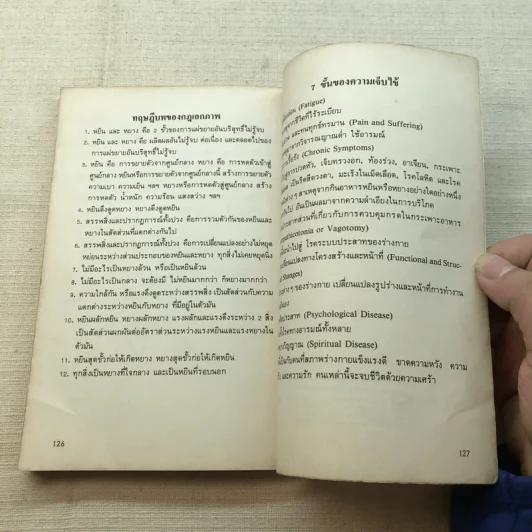 ทฤษฎีบทของกฎเอกภาพ
1. หยิน และ หยาง คือ 2 ขั้วของการแผ่ขยายอันบริสุทธิ์ไม่รู้จบ
2. หยิน และ หยาง คือ ผลิตผลอันไม่รู้จบ ต่อเนื่อง และตลอดไปของ
การแผ่ขยายอันบริสุทธิ์ไม่รู้จบ
3. หยิน คือ การขยายตัวจากศูนย์กลาง หยาง คือ การหดตัวเข้าสู่
ศูนย์กลาง หยินหรือการขยายตัวจากศูนย์กลางนี้ สร้างการขยายตัว
ความเบา ความเย็น ฯลฯ หยางหรือการหดตัวสู่ศูนย์กลาง สร้าง
การหดตัว น้ำหนัก ความร้อน แสงสว่าง ฯลฯ
4. หยินดึงดูดหยาง หยางดึงดูดหยิน
5. สรรพสิ่งและปรากฏการณ์ทั้งปวง คือการรวมตัวกันของหยินและ
หยางในสัดส่วนที่แตกต่างกันไป
6. สรรพสิ่งและปรากฏการณ์ทั้งปวง คือการเปลี่ยนแปลงอย่างไม่หยุด
หย่อนระหว่างส่วนประกอบของหยินและหยาง ทุกสิ่งไม่เคยหยุดนิ่ง
7. ไม่มีอะไรเป็นหยางล้วน หรือเป็นหยินล้วน
8. ไม่มีอะไรเป็นกลาง จะต้องมี ไม่หยินมากกว่า ก็หยางมากกว่า
9. ความใกล้กัน หรือแรงดึงดูดระหว่างสรรพสิ่ง เป็นสัดส่วนกับความ
แตกต่างระหว่างหยินกับหยาง ที่มีอยู่ในตัวมัน
10. หยินผลักหยิน หยางผลักหยาง แรงผลักและแรงดึงระหว่าง 2 สิ่ง
เป็นสัดส่วนผกผันต่ออัตราส่วนระหว่างแรงหยินและแรงหยางใน
ตัวมัน
11. หยินสุดขั้วก่อให้เกิดหยาง หยางสุดขั้วก่อให้เกิดหยิน
12. ทุกสิ่งเป็นหยางที่ใจกลาง และเป็นหยินที่รอบนอก
126
7 ขั้นของความเจ็บไข้
(Fatigue)
ชีวิตที่ไร้ระเบียบ
และทนทุกข์ทรมาน (Pain and Suffering)
วิจารณญาณต่ำ ใช้อารมณ์
(Chronic Symptoms)
ปวดหัว, เจ็บทรวงอก, ท้องร่วง, อาเจียน, กระเพาะ
เป็นริดสีดวงตา, มะเร็งในเม็ดเลือด, โรคโลหิต และโรค
ต่าง ๆ สาเหตุจากกินอาหารหยินหรือหยางอย่างใดอย่างหนึ่ง
ไป อันเป็นผลมาจากความลำเอียงในการบริโภค
ประสาทส่วนที่เกี่ยวกับการควบคุมกรดในกระเพาะอาหาร
or Vagotomy)
นำไปสู่ โรคระบบประสาทของร่างกาย
เปลี่ยนแปลงทางโครงสร้างและหน้าที่ (Functional and Struc-
Changes)
ต่าง ๆ ของร่างกาย เปลี่ยนแปลงรูปร่างและหน้าที่การทำงาน
ประสาท (Psychological Disease)
โรคทางอารมณ์ทั้งหลาย
วิญญาณ (Spiritual Disease)
เป็นกับคนที่สภาพร่างกายแข็งแรงดี ขาดความหวัง ความ
และความรัก คนเหล่านี้จะจบชีวิตด้วยความเศร้า
127